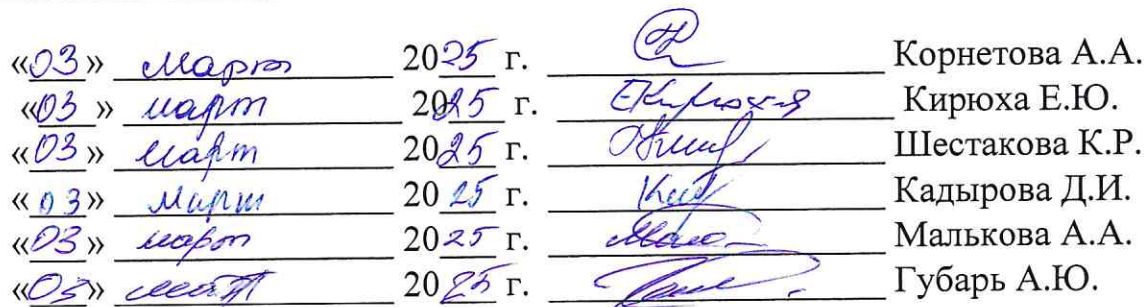 «03» Март 2025 г. Корнетова А.А.
«03» март 2025 г. ЕКирюхая Кирюха Е.Ю.
«03» март 2025 г. Шестакова К.Р.
«03» Март 2025 г. Кадырова Д.И.
«03» март 2025 г. Малькова А.А.
«03» март 2025 г. Губарь А.Ю.